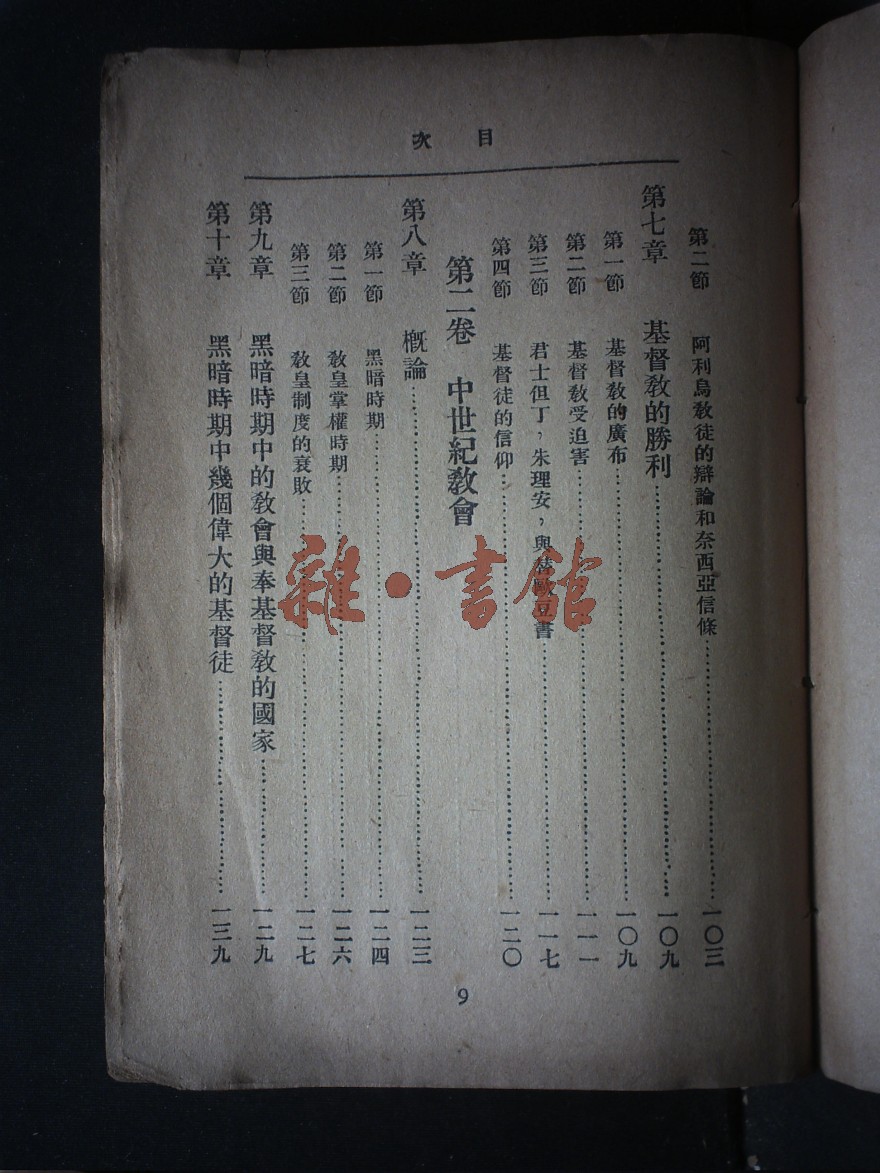 目次
第二節 阿利烏教徒的辯論和奈西亞信條 一〇三
第七章 基督教的勝利 一〇九
第一節 基督教的廣布 一〇九
第二節 基督教受迫害 一一一
第三節 君士但丁，朱理安，與 歐豆書 一一七
第四節 基督徒的信仰 一二〇
第二卷 中世紀教會
第八章 概論 一二三
第一節 黑暗時期 一二四
第二節 教皇掌權時期 一二六
第三節 教皇制度的衰敗 一二七
第九章 黑暗時期中的教會與奉基督教的國家 一二九
第十章 黑暗時期中幾個偉大的基督徒 一三九
9
雜·書館